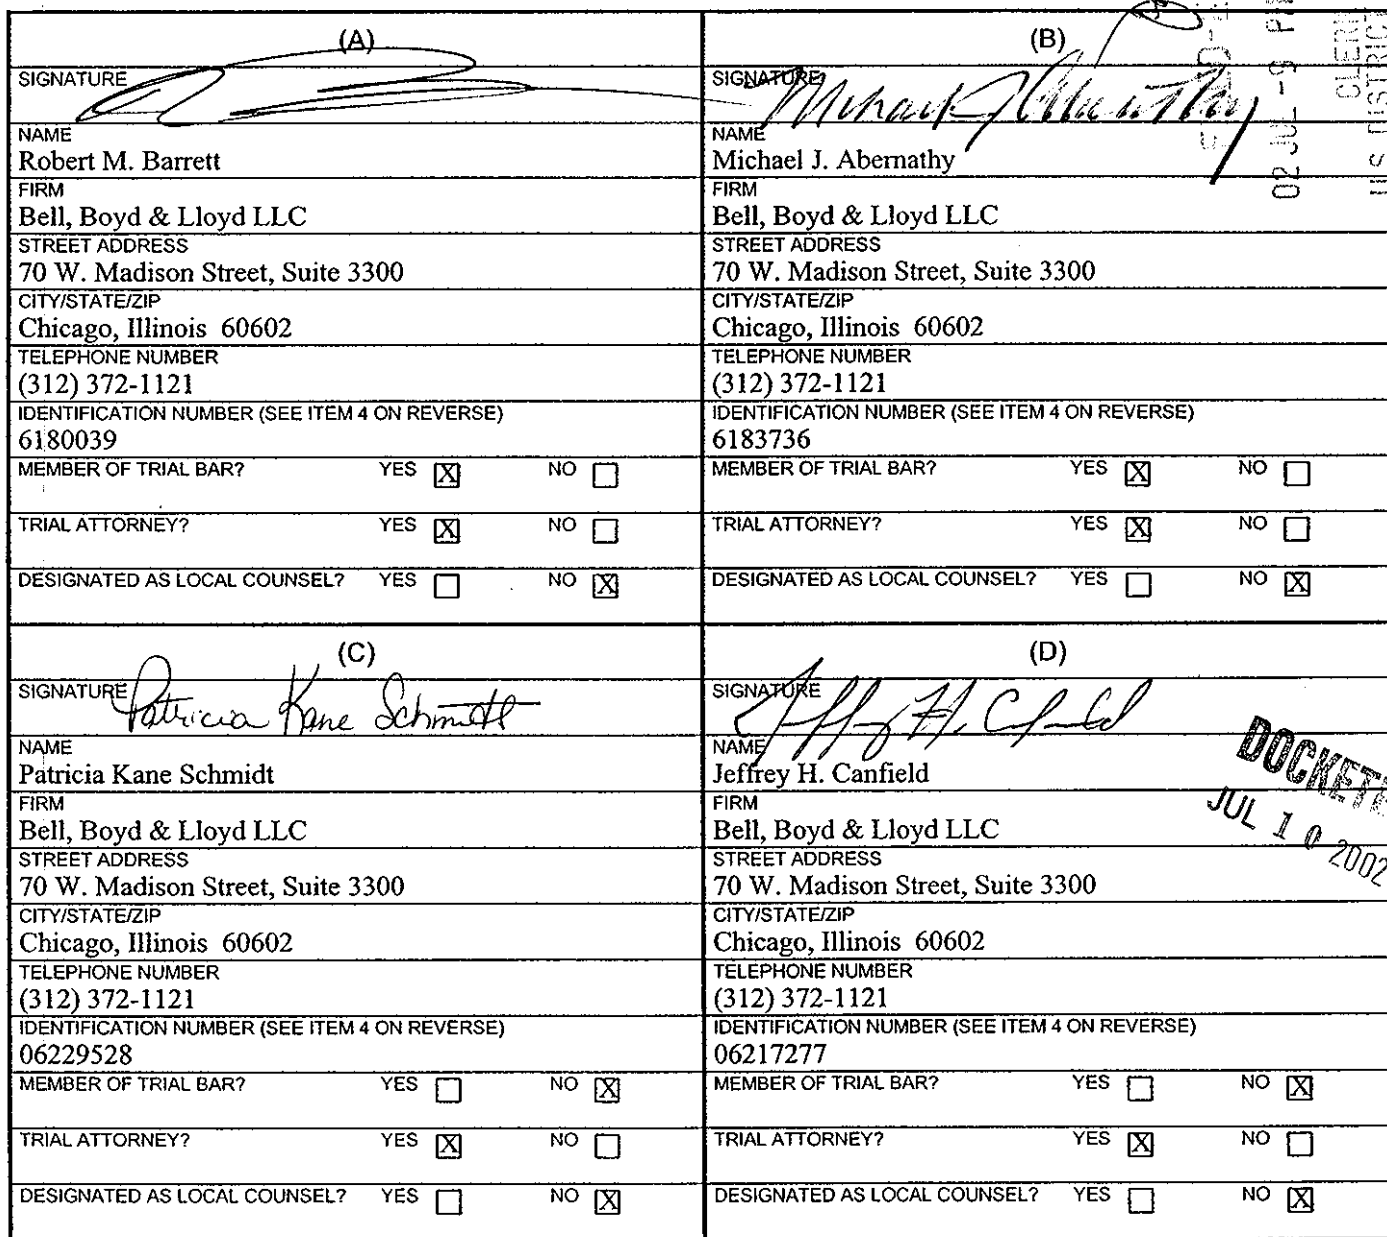 (A)
SIGNATURE
NAME
Robert M. Barrett
FIRM
Bell, Boyd & Lloyd LLC
STREET ADDRESS
70 W. Madison Street, Suite 3300
CITY/STATE/ZIP
Chicago, Illinois 60602
TELEPHONE NUMBER
(312) 372-1121
IDENTIFICATION NUMBER (SEE ITEM 4 ON REVERSE)
6180039
MEMBER OF TRIAL BAR? YES X NO
TRIAL ATTORNEY? YES X NO
DESIGNATED AS LOCAL COUNSEL? YES NO X
(B)
SIGNATURE
Michael J. Abernathy
NAME
Michael J. Abernathy
FIRM
Bell, Boyd & Lloyd LLC
STREET ADDRESS
70 W. Madison Street, Suite 3300
CITY/STATE/ZIP
Chicago, Illinois 60602
TELEPHONE NUMBER
(312) 372-1121
IDENTIFICATION NUMBER (SEE ITEM 4 ON REVERSE)
6183736
MEMBER OF TRIAL BAR? YES X NO
TRIAL ATTORNEY? YES X NO
DESIGNATED AS LOCAL COUNSEL? YES NO X
02 JUL -9 PM
CLERK
U.S. DISTRICT
(C)
SIGNATURE
Patricia Kane Schmidt
NAME
Patricia Kane Schmidt
FIRM
Bell, Boyd & Lloyd LLC
STREET ADDRESS
70 W. Madison Street, Suite 3300
CITY/STATE/ZIP
Chicago, Illinois 60602
TELEPHONE NUMBER
(312) 372-1121
IDENTIFICATION NUMBER (SEE ITEM 4 ON REVERSE)
06229528
MEMBER OF TRIAL BAR? YES NO X
TRIAL ATTORNEY? YES X NO
DESIGNATED AS LOCAL COUNSEL? YES NO X
(D)
SIGNATURE
Jeffrey H. Canfield
NAME
Jeffrey H. Canfield
FIRM
Bell, Boyd & Lloyd LLC
STREET ADDRESS
70 W. Madison Street, Suite 3300
CITY/STATE/ZIP
Chicago, Illinois 60602
TELEPHONE NUMBER
(312) 372-1121
IDENTIFICATION NUMBER (SEE ITEM 4 ON REVERSE)
06217277
MEMBER OF TRIAL BAR? YES NO X
TRIAL ATTORNEY? YES X NO
DESIGNATED AS LOCAL COUNSEL? YES NO X
DOCKETE
JUL 10 2002